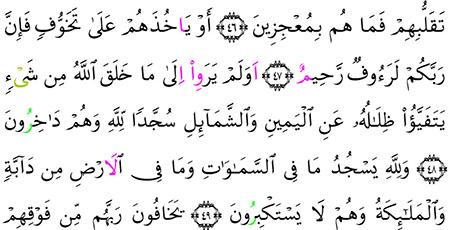 تَقَلُّبِهِمْ فَمَا هُم بِمُعْجِزِينَ ﴿٤٦﴾ أَوْ يَاخُذَهُمْ عَلَىٰ تَخَوُّفٍ فَإِنَّ
رَبَّكُمْ لَرَءُوفٌ رَّحِيمٌ ﴿٤٧﴾ اَوَلَمْ يَرَوِاْ اِلَىٰ مَا خَلَقَ اَللَّهُ مِن شَىْءٍ
يَتَفَيَّؤُاْ ظِلَٰلُهُۥ عَنِ اِلْيَمِينِ وَالشَّمَآئِلِ سُجَّدًا لِّلهِ وَهُمْ دَاخِرُونَ
﴿٤٨﴾ وَلِلهِ يَسْجُدُ مَا فِى اِلسَّمَٰوَٰتِ وَمَا فِى اِلَارْضِ مِن دَآبَّةٍ
وَالْمَلَٰٓئِكَةُ وَهُمْ لَا يَسْتَكْبِرُونَ ﴿٤٩﴾ يَخَافُونَ رَبَّهُم مِّن فَوْقِهِمْ